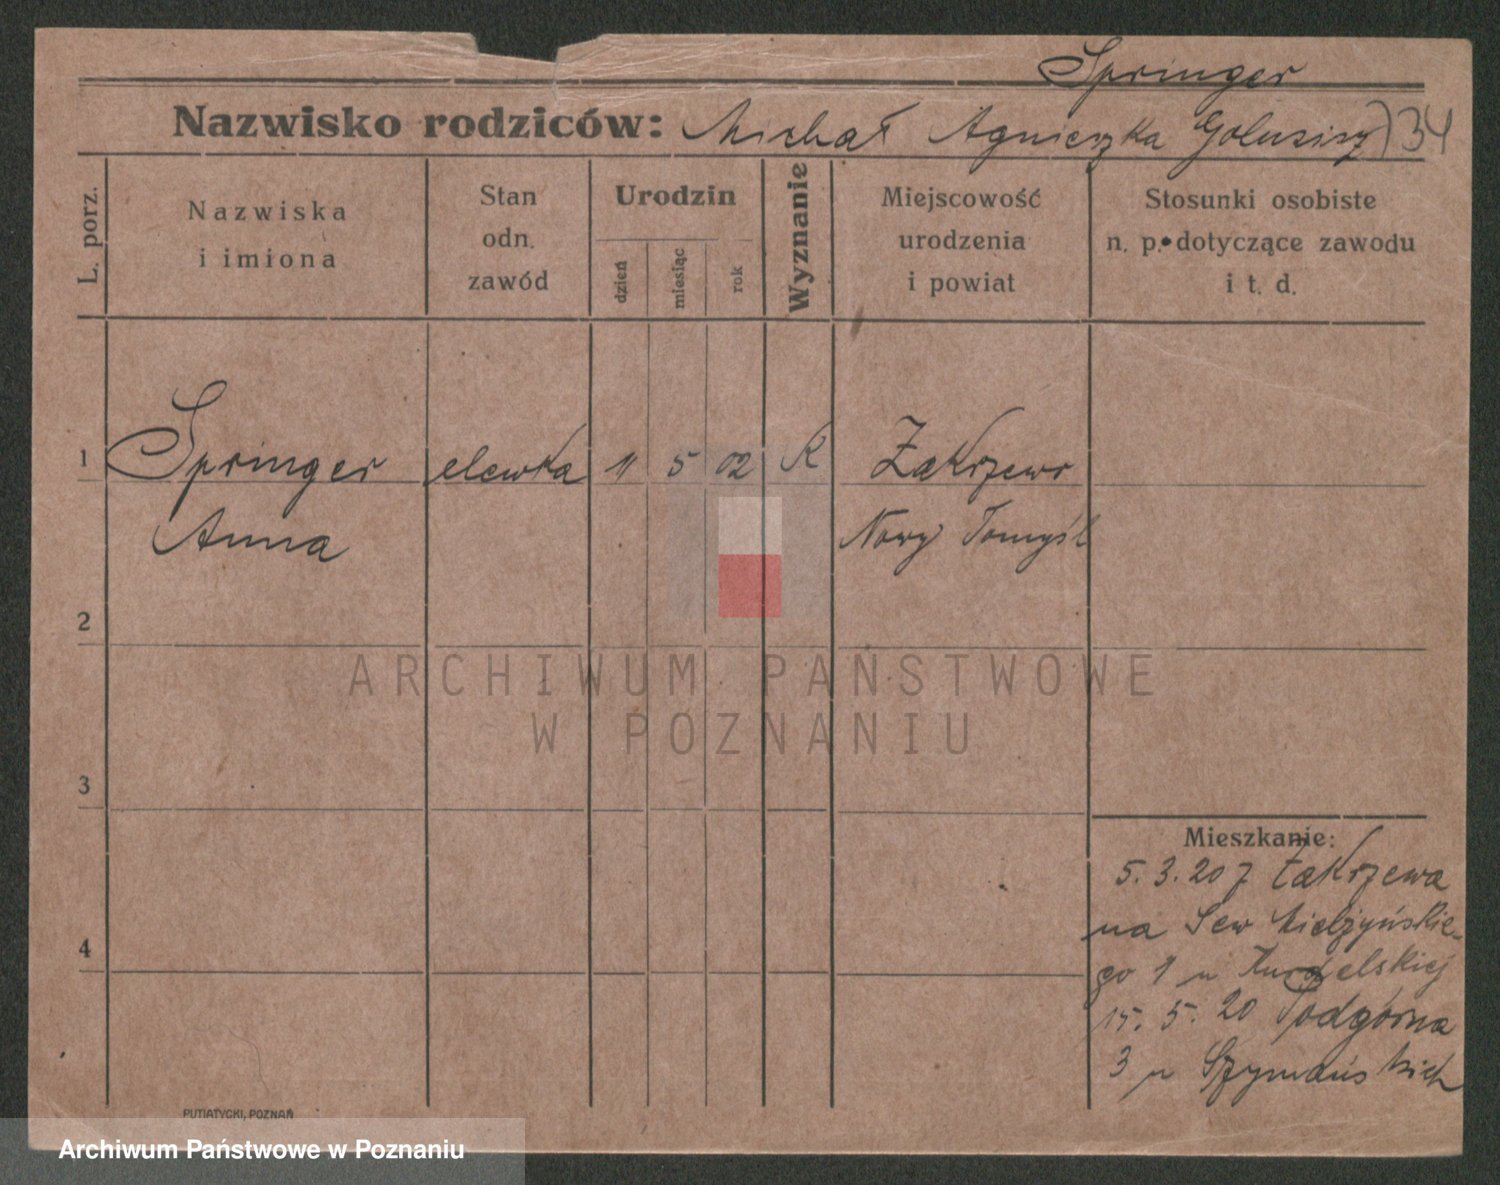 Springer
Nazwisko rodziców: Michał Agnieszka 34
L. porz.
Nazwiska
i imiona
Stan
odn.
zawód
Urodzin
dzień
miesiąc
rok
Wyznanie
Miejscowość
urodzenia
i powiat
Stosunki osobiste
n. p. dotyczące zawodu
i t. d.
1 Springer elewka 11 5 02 K Zakrzewo
Anna Nowy Tomyśl
2
ARCHIWUM PAŃSTWOWE
W POZNANIU
3
Mieszkanie:
5.3.20 z Zakrzewa
na Sew Mielżyńskie-
4
go 1 u
15. 5. 20 Podgórna
3 u Szymańskich
PUTIATYCKI, POZNAŃ
Archiwum Państwowe w Poznaniu